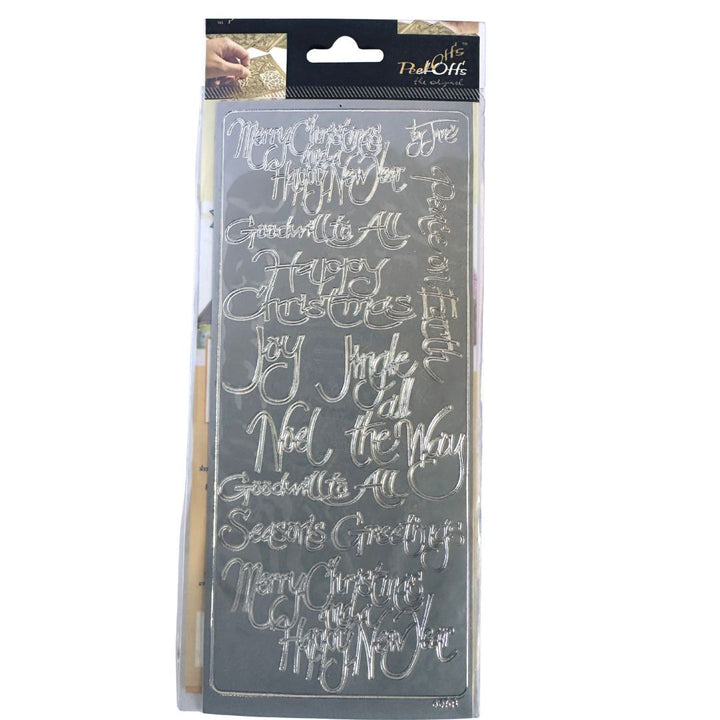 Peel Off's
the original
Merry Christmas
and a
Happy New Year
by Jane
Peace on Earth
Goodwill to All
Happy
Christmas
Joy
Jingle
all
the Way
Noel
Goodwill to All
Season's Greetings
Merry Christmas
and a
Happy New Year